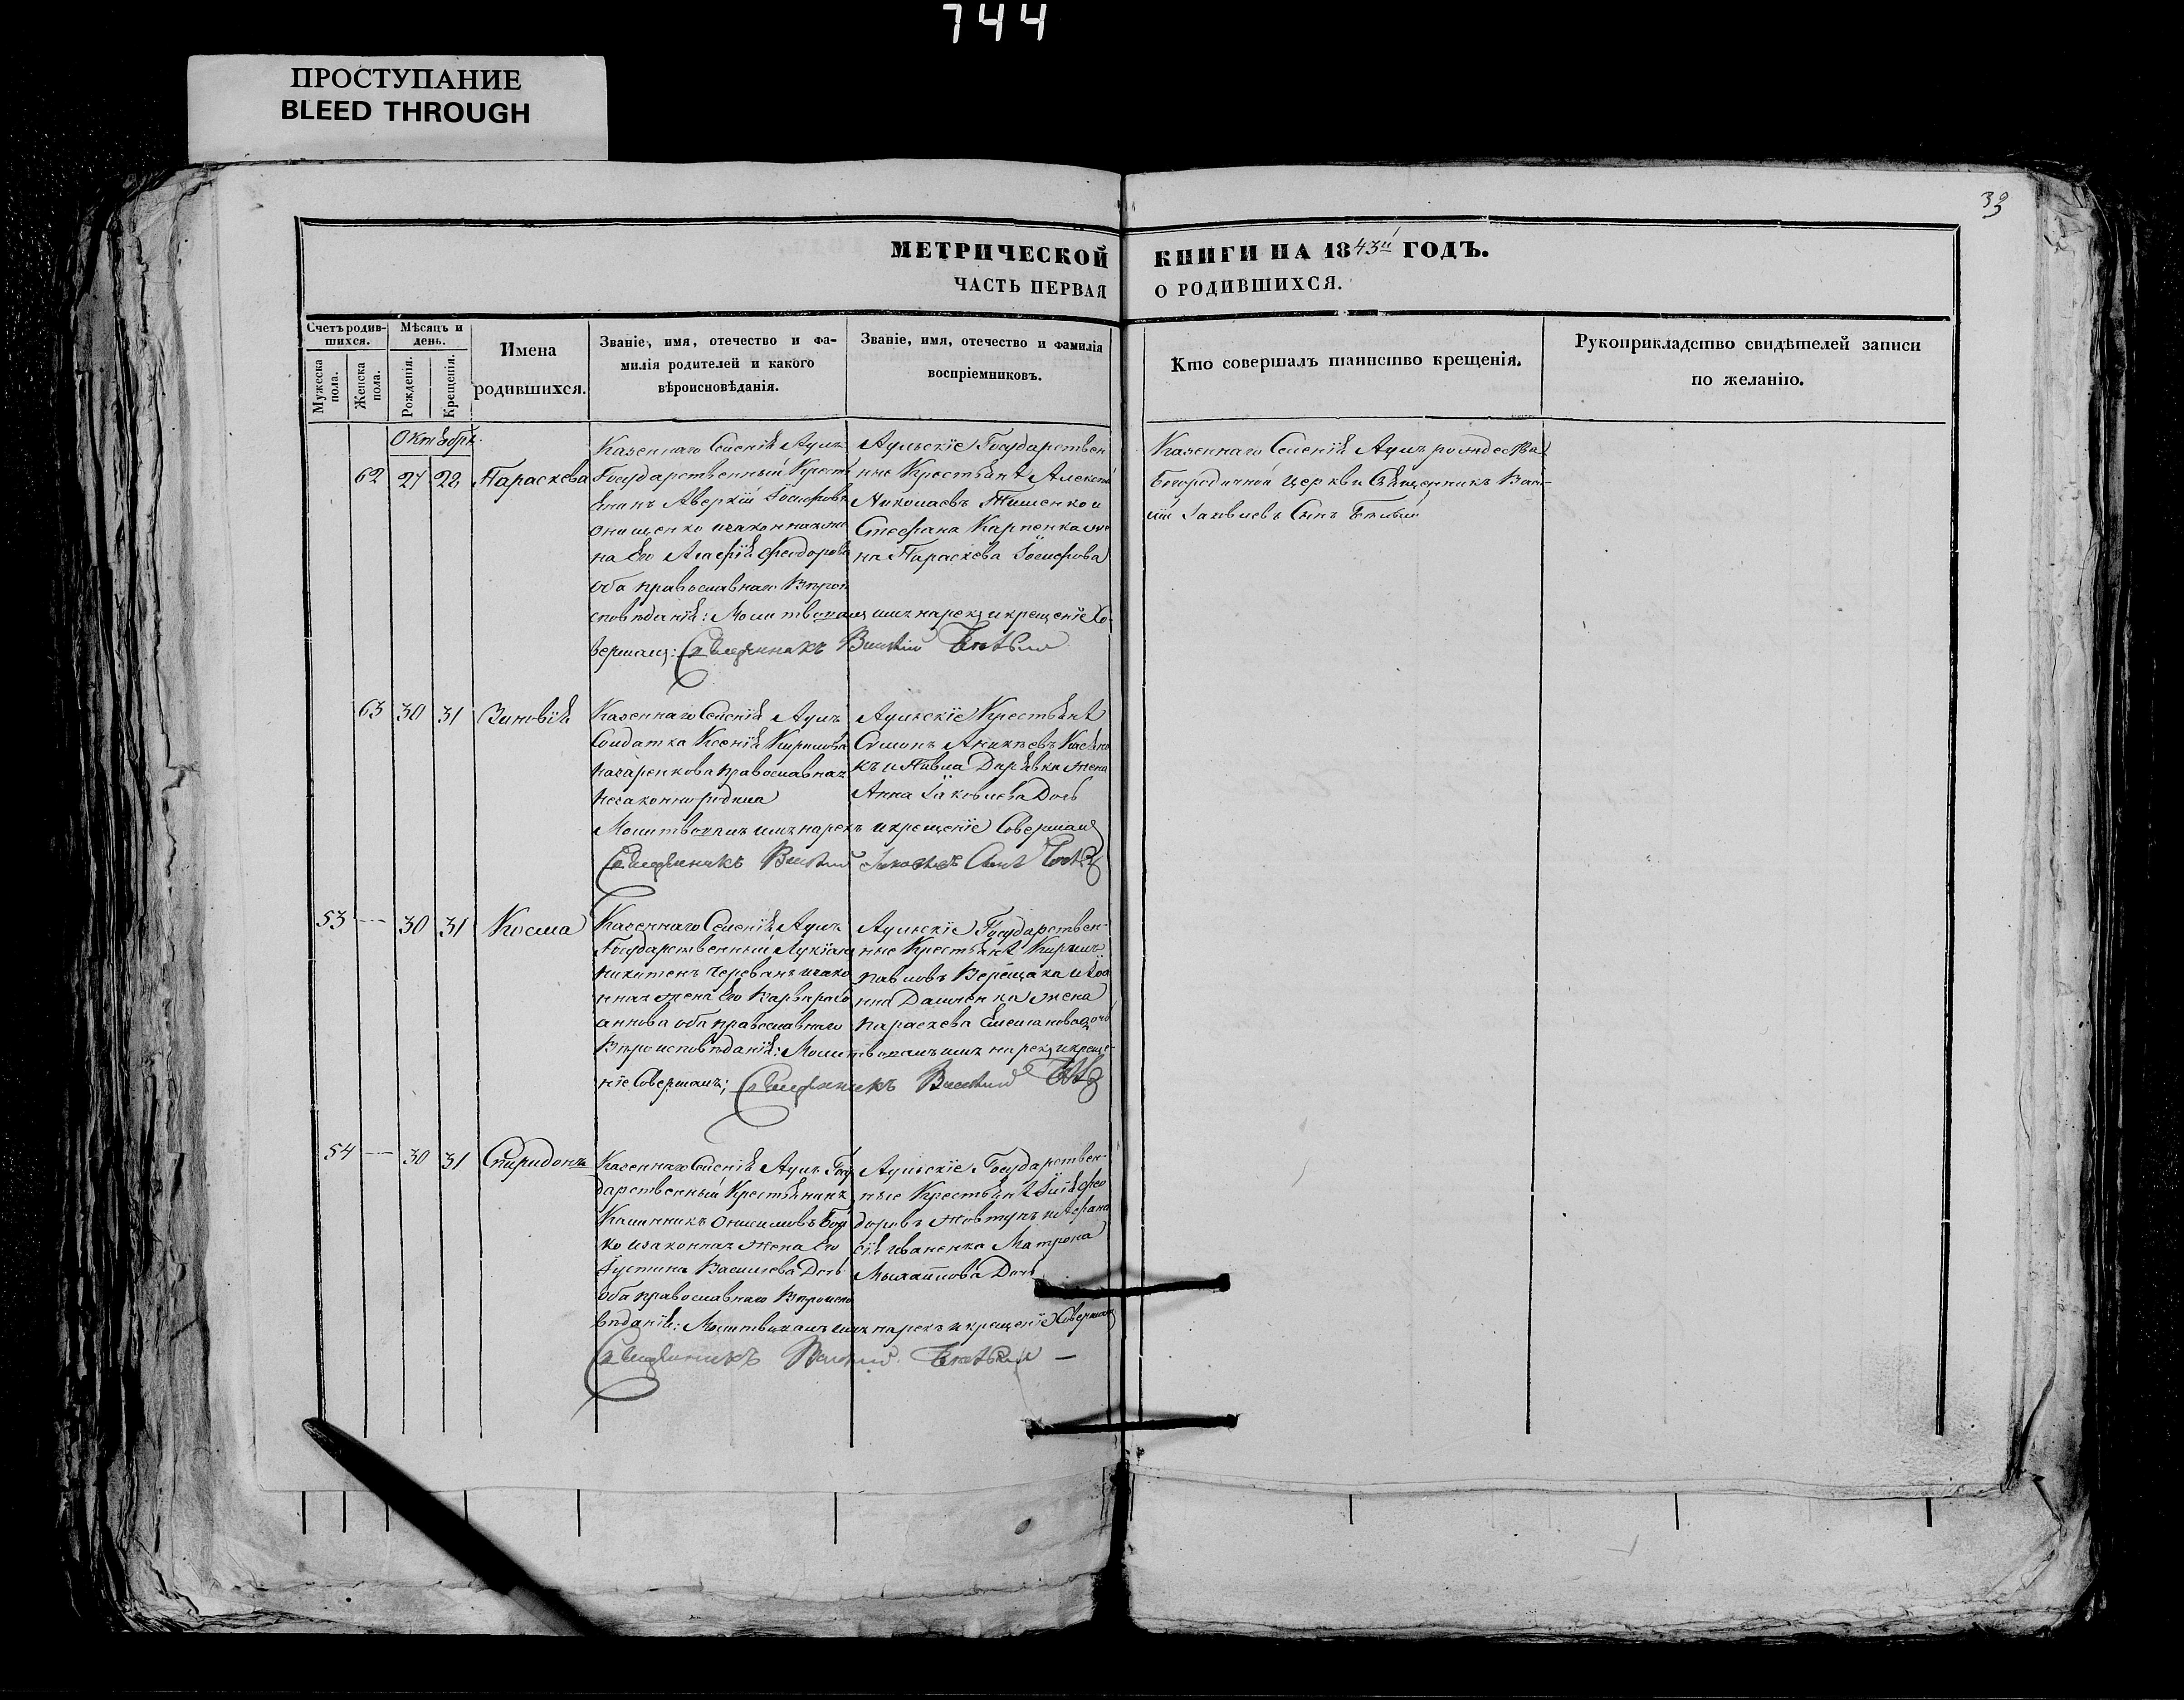 744
ПРОСТУПАНИЕ
BLEED THROUGH
33
МЕТРИЧЕСКОЙ КНИГИ НА 1843й ГОДЪ.
ЧАСТЬ ПЕРВАЯ О РОДИВШИХСЯ.
Счетъ родив-
шихся.
Мужеска пола.
Женска пола.
Мѣсяцъ и
день.
Рожденія.
Крещенія.
Имена
родившихся.
Званіе, имя, отечество и фа-
милія родителей и какого
вѣроисповѣданія.
Званіе, имя, отечество и фамилія
воспріемниковъ.
Кто совершалъ таинство крещенія.
Рукоприкладство свидѣтелей записи
по желанію.
Октябрь
62 27 28 Параскева
Казеннаго Селенія Аулъ
Государственный Кресть
янинъ Аверкій Іосифовъ
Онищенко и законная же
на его Агафія Феодорова
оба православнаго Вѣрои
сповѣданія: Молитвовалъ имя нарекъ и крещеніе Со
вершалъ: Священникъ Василій
Аульскіе Государствен
ные Крестьяне
Николаевъ Тишенко и
Стефана Карпенка же
на Параскева Іосифова
Казеннаго Селенія Аулъ рождества
Богородичной церкви Священникъ Васи-
лій Іаковлевъ Сынъ
63 30 31 Зиновія
Казеннаго Селенія Аулъ
Солдатка Ксенія Кирилова
православная
незаконнородила
Молитвовалъ имя нарекъ и крещеніе Совершалъ
Священникъ Василій Іаковлевъ Сынъ
Аульскіе Крестьяне
Симонъ
жена
Анна Іаковлева Дочь
53 --- 30 31 Косма
Казеннаго Селенія Аулъ
Государственный Лукіанъ
Никитенъ Череванъ и зако
нная жена его Варвара Іо
аннова оба православнаго
Вѣроисповѣданія: Молитвовалъ имя нарекъ и креще-
ніе Совершалъ; Священникъ Василій
Аульскіе Государствен-
ные Крестьяне Кирилъ
Павловъ Верещака и Іоа
нна жена
Параскева Емельянова дочь
54 --- 30 31 Спиридонъ
Казеннаго Селенія Аулъ Госу
дарственный Крестьянинъ
Калинникъ Онисимовъ
ко и законная жена его
Іустина Василіева Дочь
оба православнаго Вѣроиспо
вѣданія: Молитвовалъ имя нарекъ и крещеніе Совершалъ
Священникъ Василій
Аульскіе Государствен-
ные Крестьяне Илія Фео
доровъ Жовтунъ и Афана
сія Иваненка Матрона
Михайлова Дочь